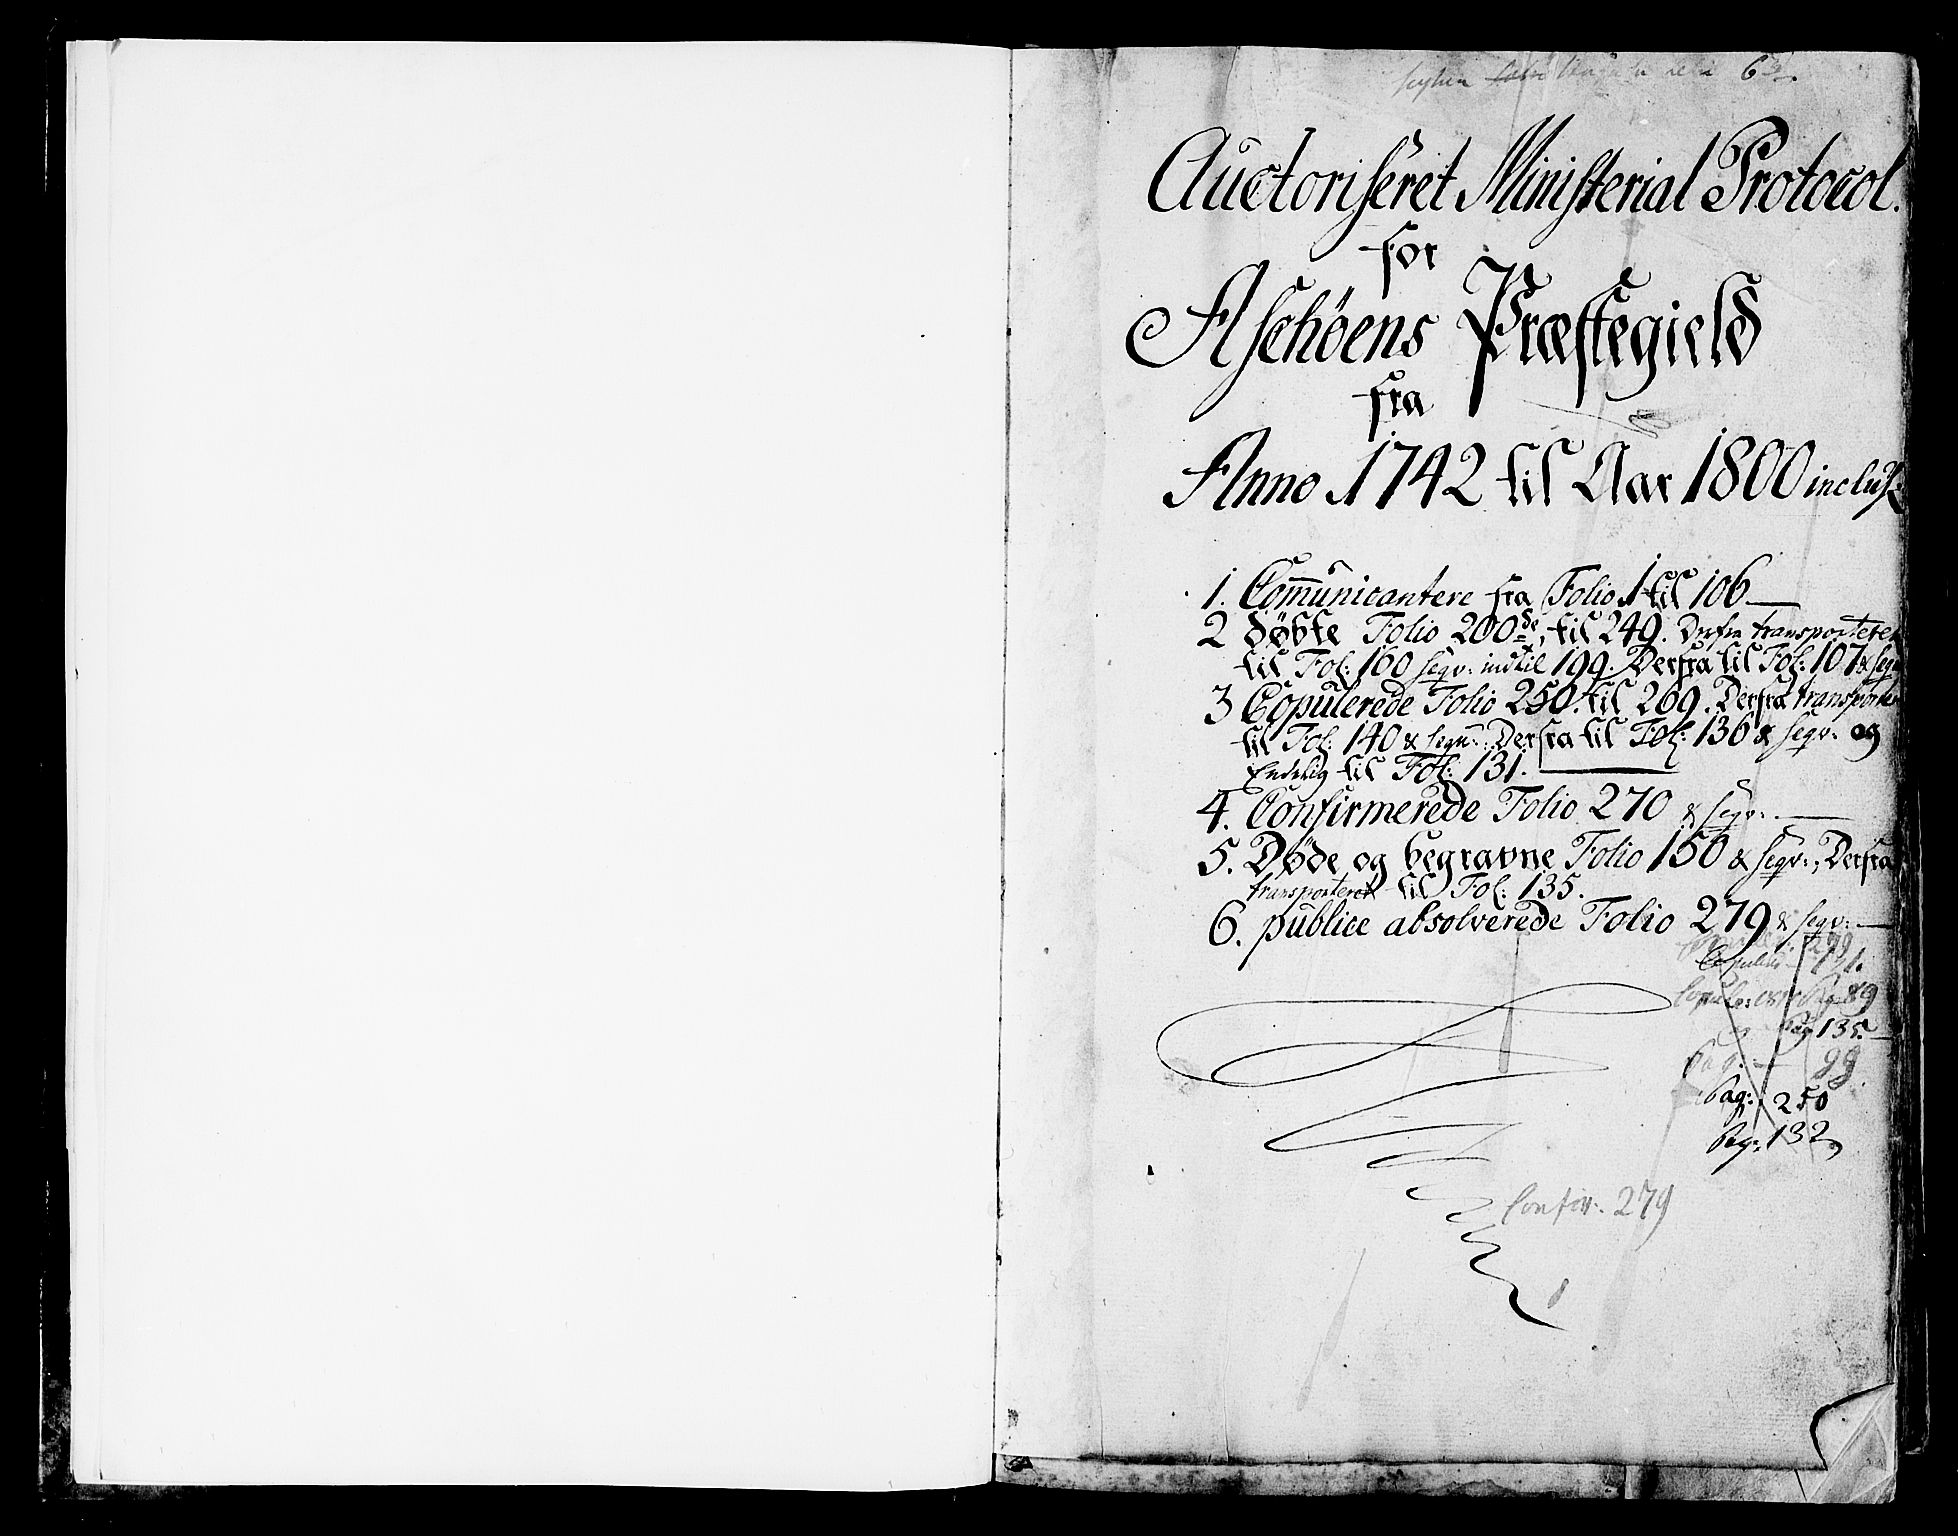 6
Auctoriseret Ministerial Protocol.
for
Aschöens Præstegield
fra
Anno 1742 til Aar 1800 inclus:
1. Com̄unicantere fra Folio 1 til 106 —
2 döbte Folio 200de, til 249. Derfra transporteret
til Fol: 160 seqv: indtil 199. Derfra til Fol: 107 & seqv
3 Copulerede Folio 250. til 269. Derfra transporte
til Fol: 140 & seqv: Derfra til Fol: 136 & seqv: og
Endelig til Fol: 131.
4. Confirmerede Folio 270 & seqv: —
5. Døde og begravne Folio 150 & seqv:, Derfra
transporteret til Fol: 135.
6. publice absolverede Folio 279 & seqv: —
279
Copuler 131.
Copule: Pag 89
og Pag 135.
Pag: — 99
Pag: 250
Pag: 132
Confir: 279